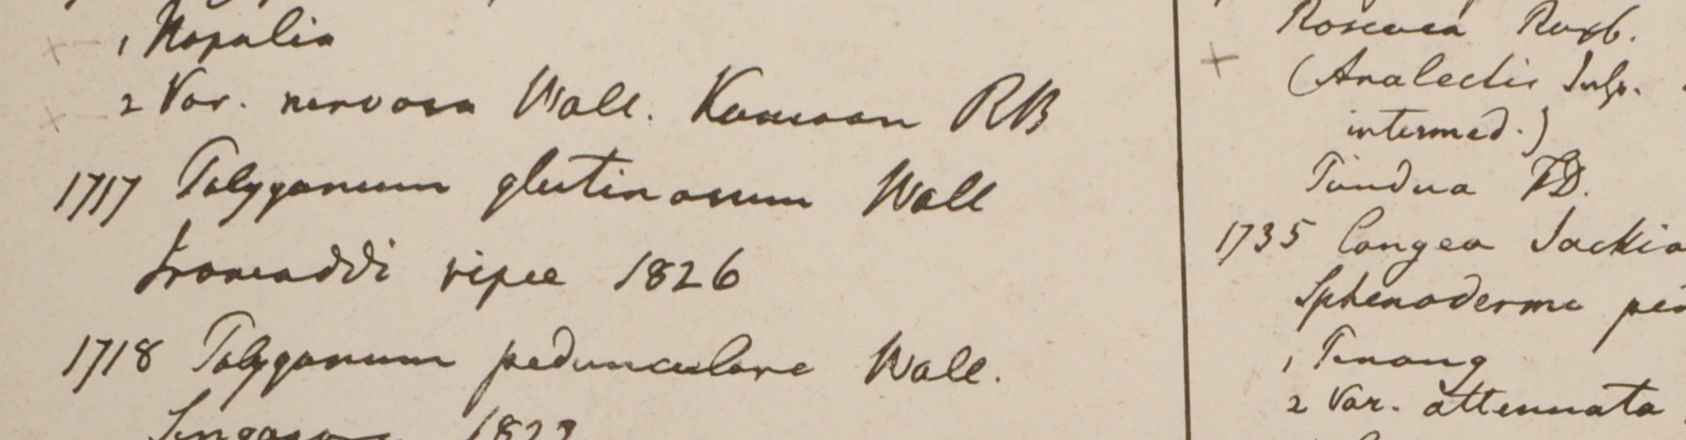 1 Napalia
2 Var. nervosa Wall. Kamaon RB
1717 Polygonum glutinosum Wall
Irawaddi ripae 1826
1718 Polygonum pedunculare Wall.
Singapore 1822
Roscoea Roxb.
(Analectis
intermed.)
Tundua FD.
1735 Congea Jackia
Sphenodesme pe
1 Penang
2 Var. attenuata